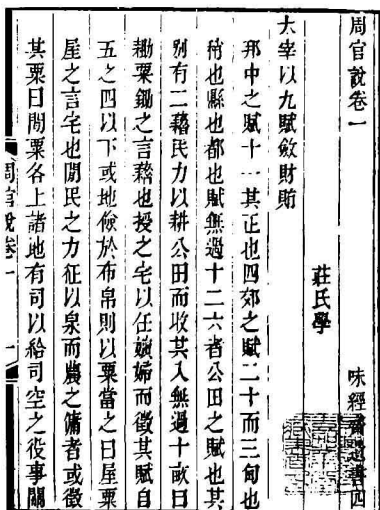 周官說卷一
味經齋遺書四
莊氏學
太宰以九賦斂財賄
邦中之賦十一其正也四郊之賦二十而三甸也
稍也縣也都也賦無過十二六者公田之賦也其
別有二藉民力以耕公田而收其入無過十畝曰
耡粟鋤之言藉也授之宅以任嬪婦而徵其賦自
五之四以下或地儉於布帛則以粟當之曰屋粟
屋之言宅也閒民之力征以泉而農之傭者或徵
其粟曰閒粟各上諸地有司以給司空之役事關
周官說卷一
一